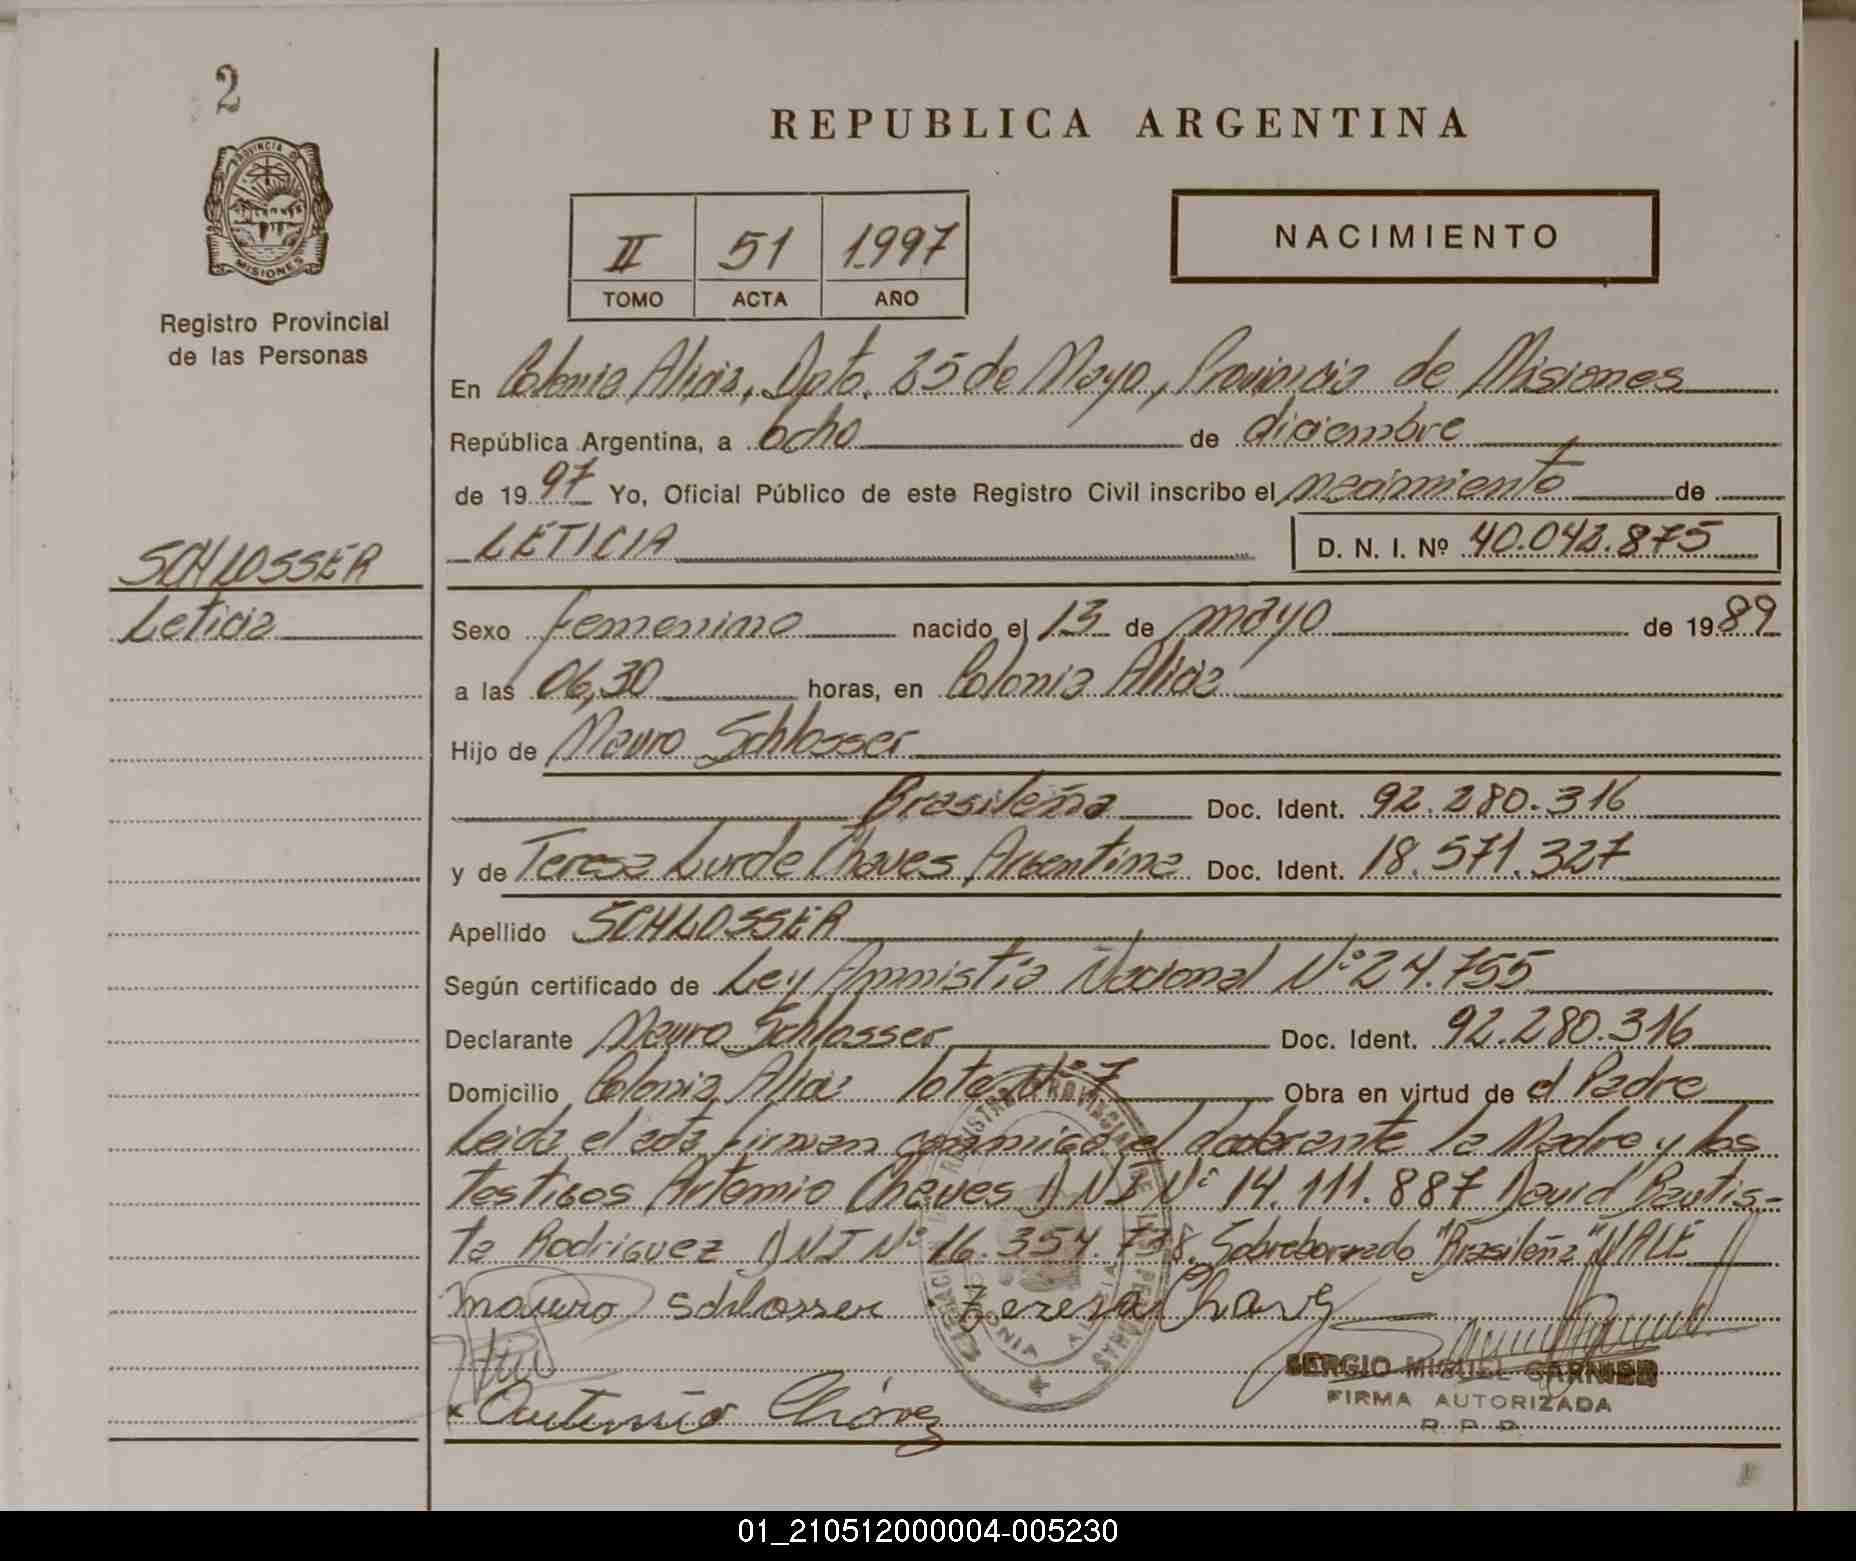 2
REPUBLICA ARGENTINA
PROVINCIA DE
MISIONES
Registro Provincial
de las Personas
II 51 1.997
TOMO ACTA AÑO
NACIMIENTO
En Colonia Alicia, Dpto. 25 de Mayo, Provincia de Misiones
República Argentina, a ocho de diciembre
de 1997 Yo, Oficial Público de este Registro Civil inscribo el nacimiento de
LETICIA D. N. I. Nº 40.042.875
SCHLOSSER
Leticia
Sexo femenino nacido el 13 de mayo de 1989
a las 06,30 horas, en Colonia Alicia
Hijo de Mauro Schlosser
Brasileña Doc. Ident. 92.280.316
y de Teresa Lurde Chaves Argentina Doc. Ident. 18.571.327
Apellido SCHLOSSER
Según certificado de Ley Amnistia Nacional Nº 24.755
Declarante Mauro Schlosser Doc. Ident. 92.280.316
Domicilio Colonia Alicia lote Nº 7 Obra en virtud de el Padre
Leida el acta firman conmigo el declarante la Madre y los
testigos Artemio Chaves DNI Nº 14.111.887 David Bautis-
ta Rodriguez DNI Nº 16.354.738. Sobreborrado "Brasileña" VALE
mauro schlosser Tereza Chavez
SERGIO MIGUEL GARNIER
FIRMA AUTORIZADA
R. P. P.
x Artemio Chávez
01_210512000004-005230